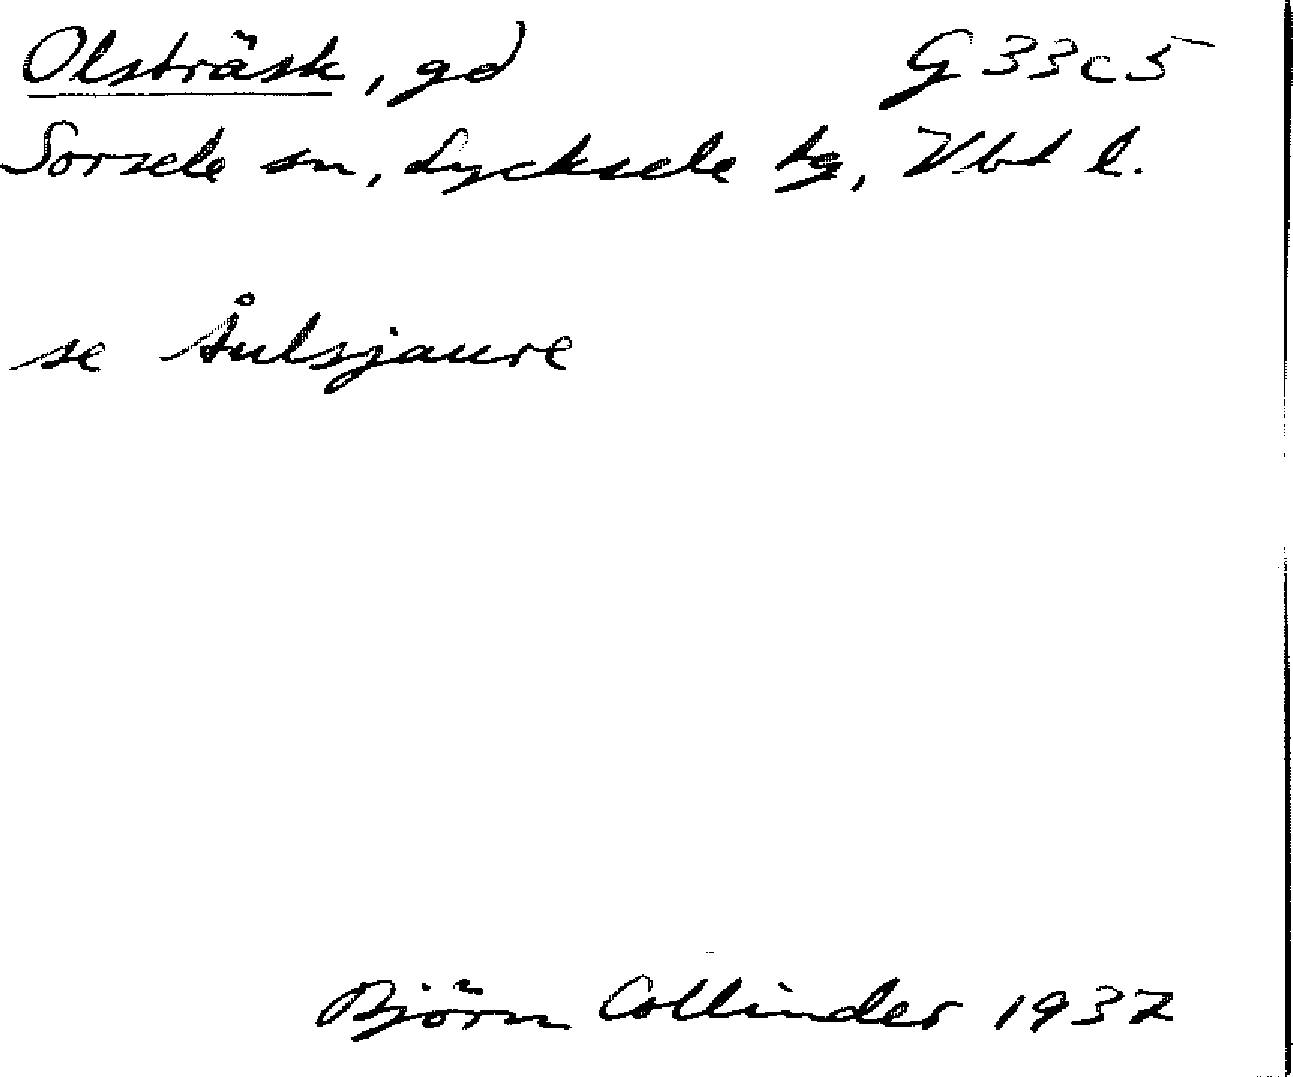 Olsträsk, gd G 33 c 5
Sorsele sn, Lycksele tg, Vbt l.
se Ålsjaure
Björn Collinder 1937